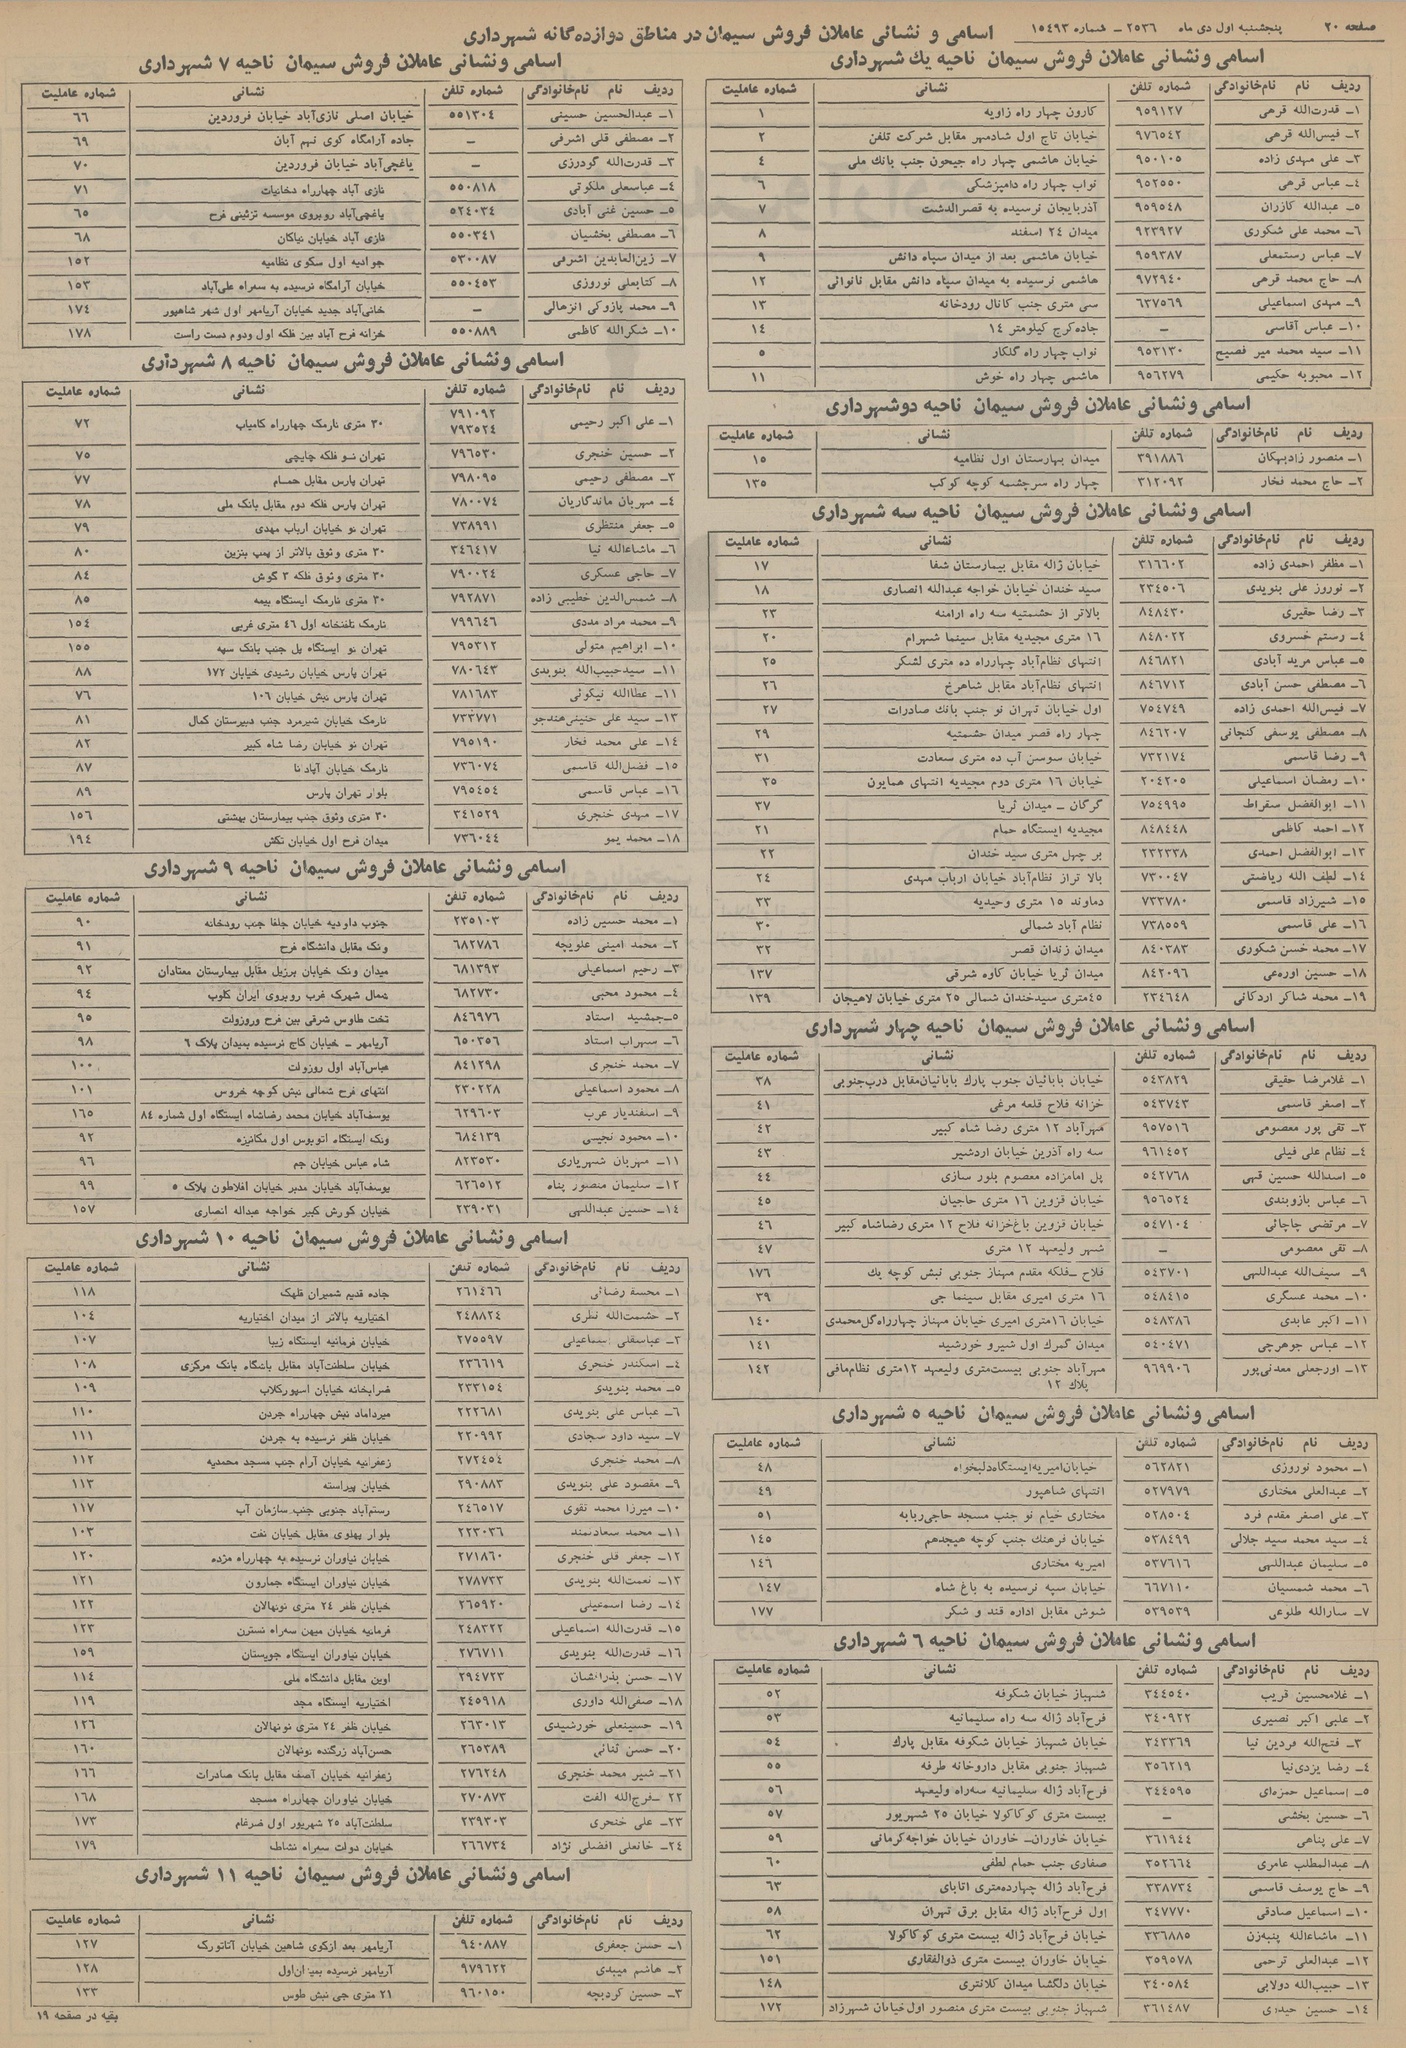 صفحه ۲۰ پنجشنبه اول دی ماه ۲۵۳۶ ـ شماره ۱۵۴۹۳
اسامی و نشانی عاملان فروش سیمان در مناطق دوازده‌گانه شهرداری
اسامی ونشانی عاملان فروش سیمان ناحیه یك شهرداری
ردیف نام نام‌خانوادگی شماره تلفن نشانی شماره عاملیت
۱ـ قدرت‌الله قرهی ۹۵۹۱۲۷ کارون چهار راه زاویه ۱
۲ـ فیس‌الله قرهی ۹۷۶۵۴۲ خیابان تاج اول شادمهر مقابل شرکت تلفن ۲
۳ـ علی مهدی زاده ۹۵۰۱۰۵ خیابان هاشمی چهار راه جیحون جنب بانك ملی ۴
۴ـ عباس قرهی ۹۵۲۵۵۰ نواب چهار راه دامپزشکی ۶
۵ـ عبدالله کازران ۹۵۹۵۴۸ آذربایجان نرسیده به قصرالدشت ۷
۶ـ محمد علی شکوری ۹۲۳۹۲۷ میدان ۲۴ اسفند ۸
۷ـ عباس رستمعلی ۹۵۹۳۸۷ خیابان هاشمی بعد از میدان سپاه دانش ۹
۸ـ حاج محمد قرهی ۹۷۲۹۴۰ هاشمی نرسیده به میدان سپاه دانش مقابل نانوائی ۱۲
۹ـ مهدی اسماعیلی ۶۳۷۵۶۹ سی متری جنب کانال رودخانه ۱۳
۱۰ـ عباس آقاسی ـ جاده‌کرج کیلومتر ۱۴ ۱۴
۱۱ـ سید محمد میر فصیح ۹۵۳۱۳۰ نواب چهار راه گلکار ۵
۱۲ـ محبوبه حکیمی ۹۵۶۲۷۹ هاشمی چهار راه خوش ۱۱
اسامی ونشانی عاملان فروش سیمان ناحیه دوشهرداری
ردیف نام نام‌خانوادگی شماره تلفن نشانی شماره عاملیت
۱ـ منصور زادبهکان ۳۹۱۸۸۶ میدان بهارستان اول نظامیه ۱۵
۲ـ حاج محمد فخار ۳۱۲۰۹۲ چهار راه سرچشمه کوچه کوکب ۱۳۵
اسامی ونشانی عاملان فروش سیمان ناحیه سه شهرداری
ردیف نام نام‌خانوادگی شماره تلفن نشانی شماره عاملیت
۱ـ مظفر احمدی زاده ۳۱۶۶۰۲ خیابان ژاله مقابل بیمارستان شفا ۱۷
۲ـ نوروز علی بنویدی ۲۳۴۵۰۶ سید خندان خیابان خواجه عبدالله انصاری ۱۸
۳ـ رضا حقیری ۸۴۸۴۳۰ بالاتر از حشمتیه سه راه ارامنه ۲۳
۴ـ رستم خسروی ۸۴۸۰۲۲ ۱۶ متری مجیدیه مقابل سینما شهرام ۲۰
۵ـ عباس مرید آبادی ۸۴۶۸۲۱ انتهای نظام‌آباد چهارراه ده متری لشکر ۲۵
۶ـ مصطفی حسن آبادی ۸۴۶۷۱۲ انتهای نظام‌آباد مقابل شاهرخ ۲۶
۷ـ فیس‌الله احمدی زاده ۷۵۴۷۴۹ اول خیابان تهران نو جنب بانك صادرات ۲۷
۸ـ مصطفی یوسفی کنجانی ۸۴۶۲۰۷ چهار راه قصر میدان حشمتیه ۲۹
۹ـ رضا قاسمی ۷۳۲۱۷۴ خیابان سوسن آب ده متری سعادت ۳۱
۱۰ـ رمضان اسماعیلی ۲۰۴۲۰۵ خیابان ۱۶ متری دوم مجیدیه انتهای همایون ۳۵
۱۱ـ ابوالفضل سقراط ۷۵۴۹۹۵ گرگان ـ میدان ثریا ۳۷
۱۲ـ احمد کاظمی ۸۴۸۴۴۸ مجیدیه ایستگاه حمام ۲۱
۱۳ـ ابوالفضل احمدی ۲۳۲۳۳۸ بر چهل متری سید خندان ۲۲
۱۴ـ لطف الله ریاضتی ۷۳۰۰۴۷ بالا تراز نظام‌آباد خیابان ارباب مهدی ۲۴
۱۵ـ شیرزاد قاسمی ۷۳۳۷۸۰ دماوند ۱۵ متری وحیدیه ۳۳
۱۶ـ علی قاسمی ۷۳۸۵۵۹ نظام آباد شمالی ۳۰
۱۷ـ محمد حسن شکوری ۸۴۰۳۸۳ میدان زندان قصر ۳۲
۱۸ـ حسین اوره‌عی ۸۴۲۰۹۶ میدان ثریا خیابان کاوه شرقی ۱۳۷
۱۹ـ محمد شاکر اردکانی ۲۳۴۶۴۸ ۴۵متری سیدخندان شمالی ۲۵ متری خیابان لاهیجان ۱۳۹
اسامی ونشانی عاملان فروش سیمان ناحیه چهار شهرداری
ردیف نام نام‌خانوادگی شماره تلفن نشانی شماره عاملیت
۱ـ غلامرضا حقیقی ۵۴۳۸۲۹ خیابان بابائیان جنوب پارك بابائیان‌مقابل درب‌جنوبی ۳۸
۲ـ اصغر قاسمی ۵۴۳۷۴۳ خزانه فلاح قلعه مرغی ۴۱
۳ـ تقی پور معصومی ۹۵۷۵۱۶ مهرآباد ۱۲ متری رضا شاه کبیر ۴۲
۴ـ نظام علی فیلی ۹۶۱۴۵۲ سه راه آذرین خیابان اردشیر ۴۳
۵ـ اسدالله حسین قهی ۵۴۲۷۶۸ پل امامزاده معصوم بلور سازی ۴۴
۶ـ عباس بازوبندی ۹۵۶۵۲۴ خیابان قزوین ۱۶ متری حاجیان ۴۵
۷ـ مرتضی چاچائی ۵۴۷۱۰۴ خیابان قزوین باغ‌خزانه فلاح ۱۲ متری رضاشاه کبیر ۴۶
۸ـ تقی معصومی ـ شهر ولیعهد ۱۲ متری ۴۷
۹ـ سیف‌الله عبداللهی ۵۴۳۷۰۱ فلاح ـ فلکه مقدم مهناز جنوبی نبش کوچه یك ۱۷۶
۱۰ـ محمد عسگری ۵۴۸۴۱۵ ۱۶ متری امیری مقابل سینما جی ۳۹
۱۱ـ اکبر عابدی ۵۴۸۳۸۶ خیابان ۱۶متری امیری خیابان مهناز چهارراه‌گل‌محمدی ۱۴۰
۱۲ـ عباس جوهرچی ۵۴۰۴۷۱ میدان گمرك اول شیرو خورشید ۱۴۱
۱۳ـ اورجعلی معدنی‌پور ۹۶۹۹۰۶ مهرآباد جنوبی بیست‌متری ولیعهد ۱۲متری نظام‌مافی ۱۴۲
پلاك ۱۲
اسامی ونشانی عاملان فروش سیمان ناحیه ۵ شهرداری
ردیف نام نام‌خانوادگی شماره تلفن نشانی شماره عاملیت
۱ـ محمود نوروزی ۵۶۲۸۲۱ خیابان‌امیریه‌ایستگاه‌دلبخواه ۴۸
۲ـ عبدالعلی مختاری ۵۲۷۹۷۹ انتهای شاهپور ۴۹
۳ـ علی اصغر مقدم فرد ۵۲۸۵۰۴ مختاری خیام نو جنب مسجد حاجی‌ربابه ۵۱
۴ـ سید محمد سید جلالی ۵۳۸۴۹۹ خیابان فرهنك جنب کوچه هیجدهم ۱۴۵
۵ـ سلیمان عبداللهی ۵۳۷۶۱۶ امیریه مختاری ۱۴۶
۶ـ محمد شمسیان ۶۶۷۱۱۰ خیابان سپه نرسیده به باغ شاه ۱۴۷
۷ـ سارالله طلوعی ۵۳۹۵۳۹ شوش مقابل اداره قند و شکر ۱۷۷
اسامی ونشانی عاملان فروش سیمان ناحیه ۶ شهرداری
ردیف نام نام‌خانوادگی شماره تلفن نشانی شماره عاملیت
۱ـ غلامحسین قریب ۳۴۴۵۴۰ شهباز خیابان شکوفه ۵۲
۲ـ علی اکبر نصیری ۳۴۰۹۲۲ فرح‌آباد ژاله سه راه سلیمانیه ۵۳
۳ـ فتح‌الله فردین نیا ۳۴۳۳۶۹ خیابان شهباز خیابان شکوفه مقابل پارك ۵۴
۴ـ رضا یزدی‌نیا ۳۵۶۲۱۹ شهباز جنوبی مقابل داروخانه طرفه ۵۵
۵ـ اسماعیل حمزه‌ای ۳۴۴۵۹۵ فرح‌آباد ژاله سلیمانیه سه‌راه ولیعهد ۵۶
۶ـ حسین بخشی ـ بیست متری کوکاکولا خیابان ۲۵ شهریور ۵۷
۷ـ علی پناهی ۳۶۱۹۴۴ خیابان خاوران‌ـ خاوران خیابان خواجه‌کرمانی ۵۹
۸ـ عبدالمطلب عامری ۳۵۲۶۶۴ صفاری جنب حمام لطفی ۶۰
۹ـ حاج یوسف قاسمی ۳۳۸۷۳۴ فرح‌آباد ژاله چهارده‌متری اتابای ۶۳
۱۰ـ اسماعیل صادقی ۳۴۷۷۷۰ اول فرح‌آباد ژاله مقابل برق تهران ۵۸
۱۱ـ ماشاءالله پنبه‌زن ۳۳۶۸۸۵ خیابان فرح‌آباد ژاله بیست متری کوکاکولا ۶۲
۱۲ـ عبدالعلی ترحمی ۳۵۹۵۷۸ خیابان خاوران بیست متری ذوالفقاری ۱۵۱
۱۳ـ حبیب‌الله دولابی ۳۴۰۵۸۴ خیابان دلگشا میدان کلانتری ۱۴۸
۱۴ـ حسین حیدری ۳۶۱۴۸۷ شهباز جنوبی بیست متری منصور اول‌خیابان شهرزاد ۱۷۲
اسامی ونشانی عاملان فروش سیمان ناحیه ۷ شهرداری
ردیف نام نام‌خانوادگی شماره تلفن نشانی شماره عاملیت
۱ـ عبدالحسین حسینی ۵۵۱۳۰۴ خیابان اصلی نازی‌آباد خیابان فروردین ۶۶
۲ـ مصطفی قلی اشرفی ـ جاده آرامگاه کوی نهم آبان ۶۹
۳ـ قدرت‌الله گودرزی ـ یاغچی‌آباد خیابان فروردین ۷۰
۴ـ عباسعلی ملکوتی ۵۵۰۸۱۸ نازی آباد چهارراه دخانیات ۷۱
۵ـ حسین غنی آبادی ۵۲۴۰۳۴ یاغچی‌آباد روبروی موسسه تزئینی فرح ۶۵
۶ـ مصطفی بخشیان ۵۵۰۳۴۱ نازی آباد خیابان نیاکان ۶۸
۷ـ زین‌العابدین اشرفی ۵۳۰۰۸۷ جوادیه اول سکوی نظامیه ۱۵۲
۸ـ کتابعلی نوروزی ۵۵۰۴۵۳ خیابان آرامگاه نرسیده به سه‌راه علی‌آباد ۱۵۳
۹ـ محمد پازوکی انزهالی ـ خانی‌آباد جدید خیابان آریامهر اول شهر شاهپور ۱۷۴
۱۰ـ شکرالله کاظمی ۵۵۰۸۸۹ خزانه فرح آباد بین فلکه اول ودوم دست راست ۱۷۸
اسامی ونشانی عاملان فروش سیمان ناحیه ۸ شهرداری
ردیف نام نام‌خانوادگی شماره تلفن نشانی شماره عاملیت
۱ـ علی اکبر رحیمی ۷۹۱۰۹۲ ۷۹۳۵۲۴ ۳۰ متری نارمک چهارراه کامیاب ۷۲
۲ـ حسین خنجری ۷۹۶۵۳۰ تهران نو فلکه چایچی ۷۵
۳ـ مصطفی رحیمی ۷۹۸۰۹۵ تهران پارس مقابل حمام ۷۷
۴ـ مهربان ماندگاریان ۷۸۰۰۷۴ تهران پارس فلکه دوم مقابل بانک ملی ۷۸
۵ـ جعفر منتظری ۷۳۸۹۹۱ تهران نو خیابان ارباب مهدی ۷۹
۶ـ ماشاءالله نیا ۳۴۶۴۱۷ ۳۰ متری وثوق بالاتر از پمپ بنزین ۸۰
۷ـ حاجی عسکری ۷۹۰۰۲۴ ۳۰ متری وثوق فلکه ۳ گوش ۸۴
۸ـ شمس‌الدین خطیبی زاده ۷۹۲۸۷۱ ۳۰ متری نارمک ایستگاه بیمه ۸۵
۹ـ محمد مراد مددی ۷۹۹۶۴۶ نارمک تلفنخانه اول ۴۶ متری غربی ۱۵۴
۱۰ـ ابراهیم متولی ۷۹۵۳۱۲ تهران نو ایستگاه پل جنب بانک سپه ۱۵۵
۱۱ـ سیدحبیب‌الله بنویدی ۷۸۰۶۴۳ تهران پارس خیابان رشیدی خیابان ۱۷۲ ۸۸
۱۱ـ عطاالله نیکوئی ۷۸۱۶۸۳ تهران پارس نبش خیابان ۱۰۶ ۷۶
۱۳ـ سید علی حنینی‌هندجو ۷۳۳۷۷۱ نارمک خیابان شیرمرد جنب دبیرستان کمال ۸۱
۱۴ـ علی محمد فخار ۷۹۵۱۹۰ تهران نو خیابان رضا شاه کبیر ۸۲
۱۵ـ فضل‌الله قاسمی ۷۳۶۰۷۴ نارمک خیابان آپاد نا ۸۷
۱۶ـ عباس قاسمی ۷۹۵۴۵۴ بلوار تهران پارس ۸۹
۱۷ـ مهدی خنجری ۳۴۱۵۲۹ ۳۰ متری وثوق جنب بیمارستان بهشتی ۱۵۶
۱۸ـ محمد یمو ۷۳۶۰۴۴ میدان فرح اول خیابان تکش ۱۹۴
اسامی ونشانی عاملان فروش سیمان ناحیه ۹ شهرداری
ردیف نام نام‌خانوادگی شماره تلفن نشانی شماره عاملیت
۱ـ محمد حسین زاده ۲۳۵۱۰۳ جنوب داودیه خیابان جلفا جنب رودخانه ۹۰
۲ـ محمد امینی علویچه ۶۸۲۷۸۶ ونک مقابل دانشگاه فرح ۹۱
۳ـ رحیم اسماعیلی ۶۸۱۳۹۳ میدان ونک خیابان برزیل مقابل بیمارستان معتادان ۹۳
۴ـ محمود محبی ۶۸۲۷۳۰ شمال شهرک غرب روبروی ایران کلوپ ۹۴
۵ـ جمشید استاد ۸۴۶۹۷۶ تخت طاوس شرقی بین فرح وروزولت ۹۵
۶ـ سهراب استاد ۶۵۰۳۵۶ آریامهر ـ خیابان کاج نرسیده بمیدان پلاک ۶ ۹۸
۷ـ محمد خنجری ۸۴۱۲۹۸ عباس‌آباد اول روزولت ۱۰۰
۸ـ محمود اسماعیلی ۲۳۰۲۲۸ انتهای فرح شمالی نبش کوچه خروس ۱۰۱
۹ـ اسفندیار عرب ۶۲۹۶۰۳ یوسف‌آباد خیابان محمد رضاشاه ایستگاه اول شماره ۸۴ ۱۶۵
۱۰ـ محمود نجیبی ۶۸۴۱۳۹ ونک ایستگاه اتوبوس اول مکانیزه ۹۲
۱۱ـ مهربان شهریاری ۸۲۳۵۳۰ شاه عباس خیابان جم ۹۶
۱۲ـ سلیمان منصور پناه ۶۲۶۵۱۲ یوسف‌آباد خیابان مدبر خیابان افلاطون پلاک ۵ ۹۹
۱۴ـ حسین عبداللهی ۲۳۹۰۳۱ خیابان کورش کبیر خواجه عبداله انصاری ۱۵۷
اسامی ونشانی عاملان فروش سیمان ناحیه ۱۰ شهرداری
ردیف نام نام‌خانوادگی شماره تلفن نشانی شماره عاملیت
۱ـ محسن رضائی ۲۶۱۴۶۶ جاده قدیم شمیران قلهک ۱۱۸
۲ـ حشمت‌الله نظری ۲۴۸۸۲۴ اختیاریه بالاتر از میدان اختیاریه ۱۰۴
۳ـ عباسقلی اسماعیلی ۲۷۵۵۹۷ خیابان فرمانیه ایستگاه زیبا ۱۰۷
۴ـ اسکندر خنجری ۲۳۶۶۱۹ خیابان سلطنت‌آباد مقابل باشگاه بانک مرکزی ۱۰۸
۵ـ محمد بنویدی ۲۳۳۱۵۴ ضرابخانه خیابان اسپورکلاب ۱۰۹
۶ـ عباس علی بنویدی ۲۲۲۶۸۱ میرداماد نبش چهارراه جردن ۱۱۰
۷ـ سید داود سجادی ۲۲۰۹۹۲ خیابان ظفر نرسیده به جردن ۱۱۱
۸ـ محمد خنجری ۲۷۲۴۵۴ زعفرانیه خیابان آرام جنب مسجد محمدیه ۱۱۲
۹ـ مقصود علی بنویدی ۲۹۰۸۸۳ خیابان پیراسته ۱۱۳
۱۰ـ میرزا محمد تقوی ۲۴۶۵۱۷ رستم‌آباد جنوبی جنب سازمان آب ۱۱۷
۱۱ـ محمد سعادتمند ۲۲۳۰۳۶ بلوار پهلوی مقابل خیابان نفت ۱۰۳
۱۲ـ جعفر قلی خنجری ۲۷۱۸۶۰ خیابان نیاوران نرسیده به چهارراه مژده ۱۲۰
۱۳ـ نعمت‌الله بنویدی ۲۷۸۷۳۳ خیابان نیاوران ایستگاه جمارون ۱۲۱
۱۴ـ رضا اسمعیلی ۲۶۵۹۲۰ خیابان ظفر ۲۴ متری نونهالان ۱۲۲
۱۵ـ قدرت‌الله اسماعیلی ۲۴۸۳۲۲ فرمانیه خیابان میهن سه‌راه نسترن ۱۲۳
۱۶ـ قدرت‌الله بنویدی ۲۷۶۷۱۱ خیابان نیاوران ایستگاه جویستان ۱۵۹
۱۷ـ حسن بذرافشان ۲۹۴۷۲۳ اوین مقابل دانشگاه ملی ۱۱۴
۱۸ـ صفی‌الله داوری ۲۴۵۹۱۸ اختیاریه ایستگاه مجد ۱۱۹
۱۹ـ حسینعلی خورشیدی ۲۶۳۰۱۳ خیابان ظفر ۲۴ متری نونهالان ۱۲۶
۲۰ـ حسن ثنائی ۲۶۵۳۸۹ حسن‌آباد زرگنده نونهالان ۱۶۰
۲۱ـ شیر محمد خنجری ۲۷۶۲۴۸ زعفرانیه خیابان آصف مقابل بانک صادرات ۱۶۶
۲۲ ـ فرج‌الله الفت ۲۷۰۸۷۳ خیابان نیاوران چهارراه مسجد ۱۶۸
۲۳ـ علی خنجری ۲۳۹۳۰۳ سلطنت‌آباد ۲۵ شهریور اول ضرغام ۱۷۳
۲۴ـ خانعلی افضلی نژاد ۲۶۶۷۳۴ خیابان دولت سه‌راه نشاط ۱۷۹
اسامی ونشانی عاملان فروش سیمان ناحیه ۱۱ شهرداری
ردیف نام نام‌خانوادگی شماره تلفن نشانی شماره عاملیت
۱ـ حسن جعفری ۹۴۰۸۸۷ آریامهر بعد ازکوی شاهین خیابان آتاتورک ۱۲۷
۲ـ هاشم میبدی ۹۷۹۶۲۲ آریامهر نرسیده بمیدان‌اول ۱۲۸
۳ـ حسین کردبچه ۹۶۰۱۵۰ ۲۱ متری جی نبش طوس ۱۳۳
بقیه در صفحه ۱۹